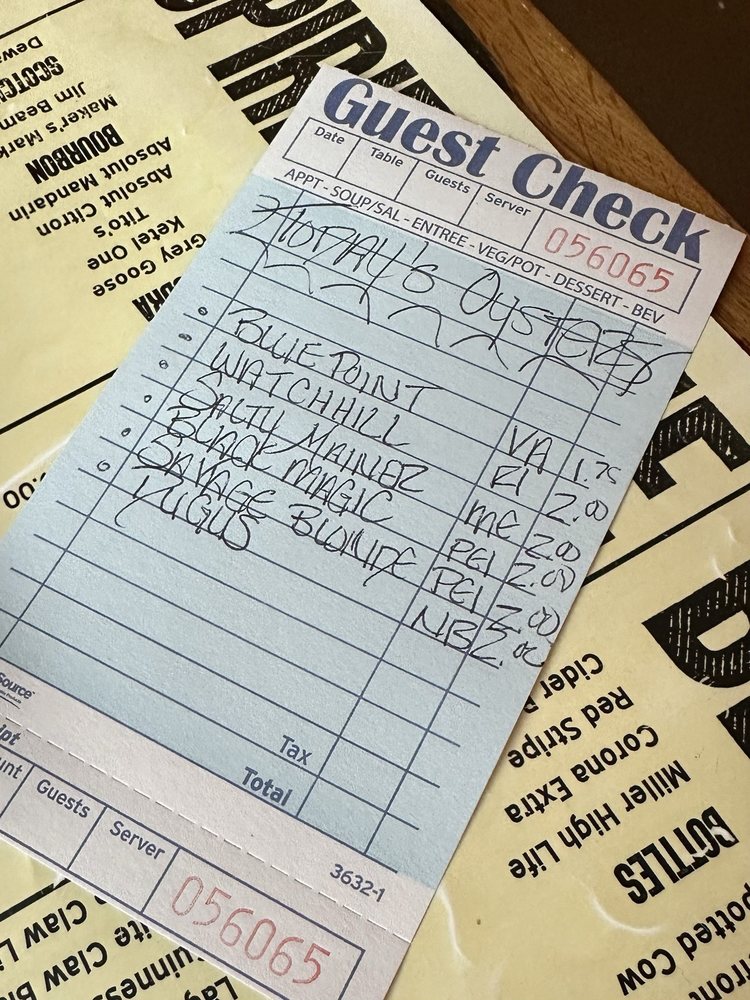 Guest Check
Date Table Guests Server
056065
APPT - SOUP/SAL - ENTREE - VEG/POT - DESSERT - BEV
TODAY'S OYSTERS
BLUE POINT VA 1.75
WATCHHILL RI 2.00
SALTY MAINER ME 2.00
BLACK MAGIC PEI 2.00
SAVAGE BLONDE PEI 2.00
KUGUS NB 2.00
Tax
Total
Source
Guests Server
3632-1
056065
SPIRI
SCOTCH
Dewa
Jim Beam
Maker's Mark
BOURBON
Absolut Mandarin
Absolut Citron
Tito's
Ketel One
Grey Goose
DKA
.00
Cider B
Red Stripe
Corona Extra
Miller High Life
BOTTLES
potted Cow
ite Claw Bl
Claw Li
uinness
Lag